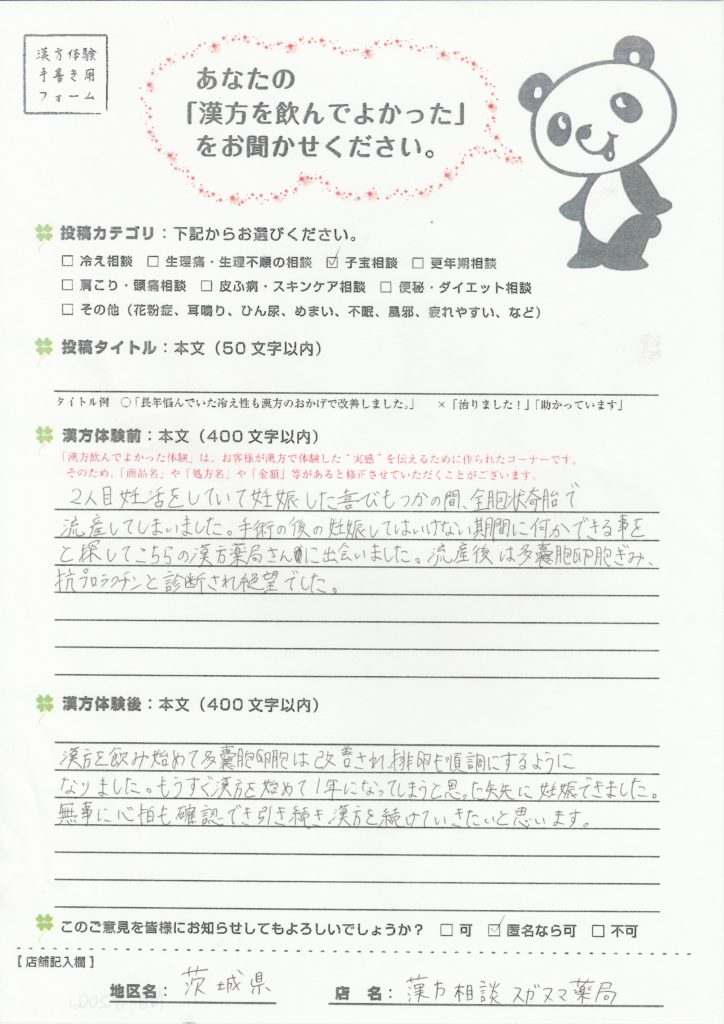 漢方体験
手書き用
フォーム
あなたの
「漢方を飲んでよかった」
をお聞かせください。
投稿カテゴリ：下記からお選びください。
□ 冷え相談 □ 生理痛・生理不順の相談 ☑ 子宝相談 □ 更年期相談
□ 肩こり・頭痛相談 □ 皮ふ病・スキンケア相談 □ 便秘・ダイエット相談
□ その他（花粉症、耳鳴り、ひん尿、めまい、不眠、風邪、疲れやすい、など）
投稿タイトル：本文（50文字以内）
タイトル例 ○「長年悩んでいた冷え性も漢方のおかげで改善しました。」 ×「治りました！」「助かっています」
漢方体験前：本文（400文字以内）
「漢方飲んでよかった体験」は、お客様が漢方で体験した"実感"を伝えるために作られたコーナーです。
そのため、「商品名」や「処方名」や「金額」等があると修正させていただくことがございます。
2人目妊活をしていて妊娠した喜びもつかの間、全胞状奇胎で
流産してしまいました。手術の後の妊娠してはいけない期間に何かできる事を
と探してこちらの漢方薬局さんに出会いました。流産後は多嚢胞卵胞ぎみ、
抗プロラクチンと診断され絶望でした。
漢方体験後：本文（400文字以内）
漢方を飲み始めて多嚢胞卵胞は改善され排卵も順調にするように
なりました。もうすぐ漢方を始めて1年になってしまうと思った矢先に妊娠できました。
無事に心拍も確認でき引き続き漢方を続けていきたいと思います。
このご意見を皆様にお知らせしてもよろしいでしょうか？ □ 可 ☑ 匿名なら可 □ 不可
【店舗記入欄】
地区名：茨城県 店 名：漢方相談 スガヌマ薬局